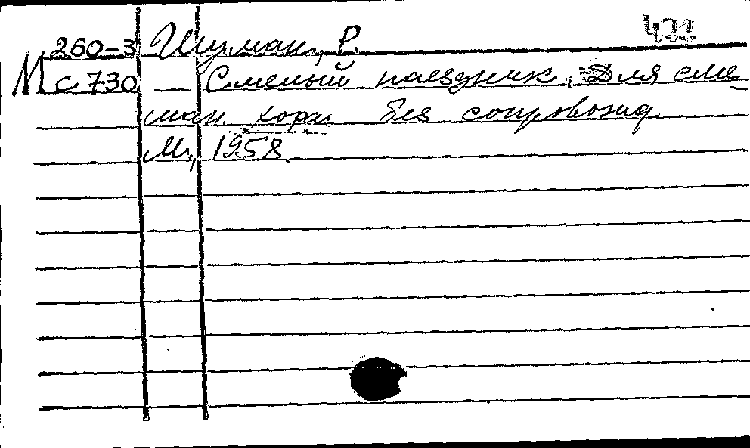 433
260-3 Шуман, Р.
М с 730 — Смелый наездник. Для сме-
шан. хора без сопровожд.
М., 1958